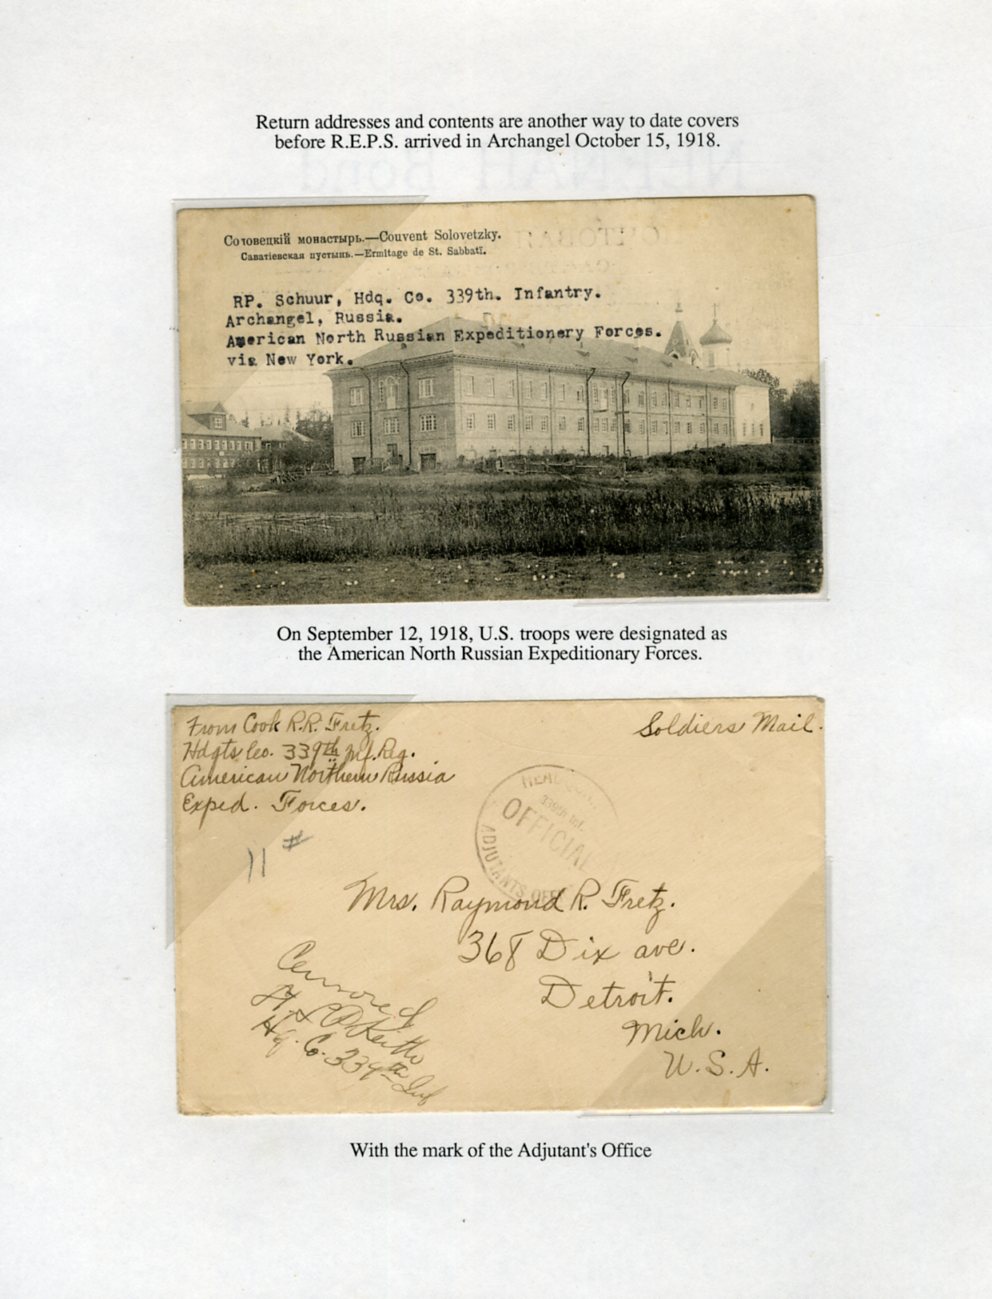 Return addresses and contents are another way to date covers
before R.E.P.S. arrived in Archangel October 15, 1918.
Соловецкій монастырь.—Couvent Solovetzky.
Савватіевская пустынь.—Ermitage de St. Sabbatï.
RP. Schuur, Hdq. Co. 339th. Infantry.
Archangel, Russia.
American North Russian Expeditionery Forces.
via New York.
On September 12, 1918, U.S. troops were designated as
the American North Russian Expeditionary Forces.
From Cook R.R. Fretz.
Hdqts Co. 339th Inf. Reg.
American Northern Russia
Exped. Forces.
Soldiers Mail.
11 #
339th Inf.
OFFICIAL
ADJUTANTS OFF
Mrs. Raymond R. Fretz.
368 Dix ave.
Detroit.
Mich.
U.S.A.
Censored
Hq. Co. 339th Inf
With the mark of the Adjutant's Office